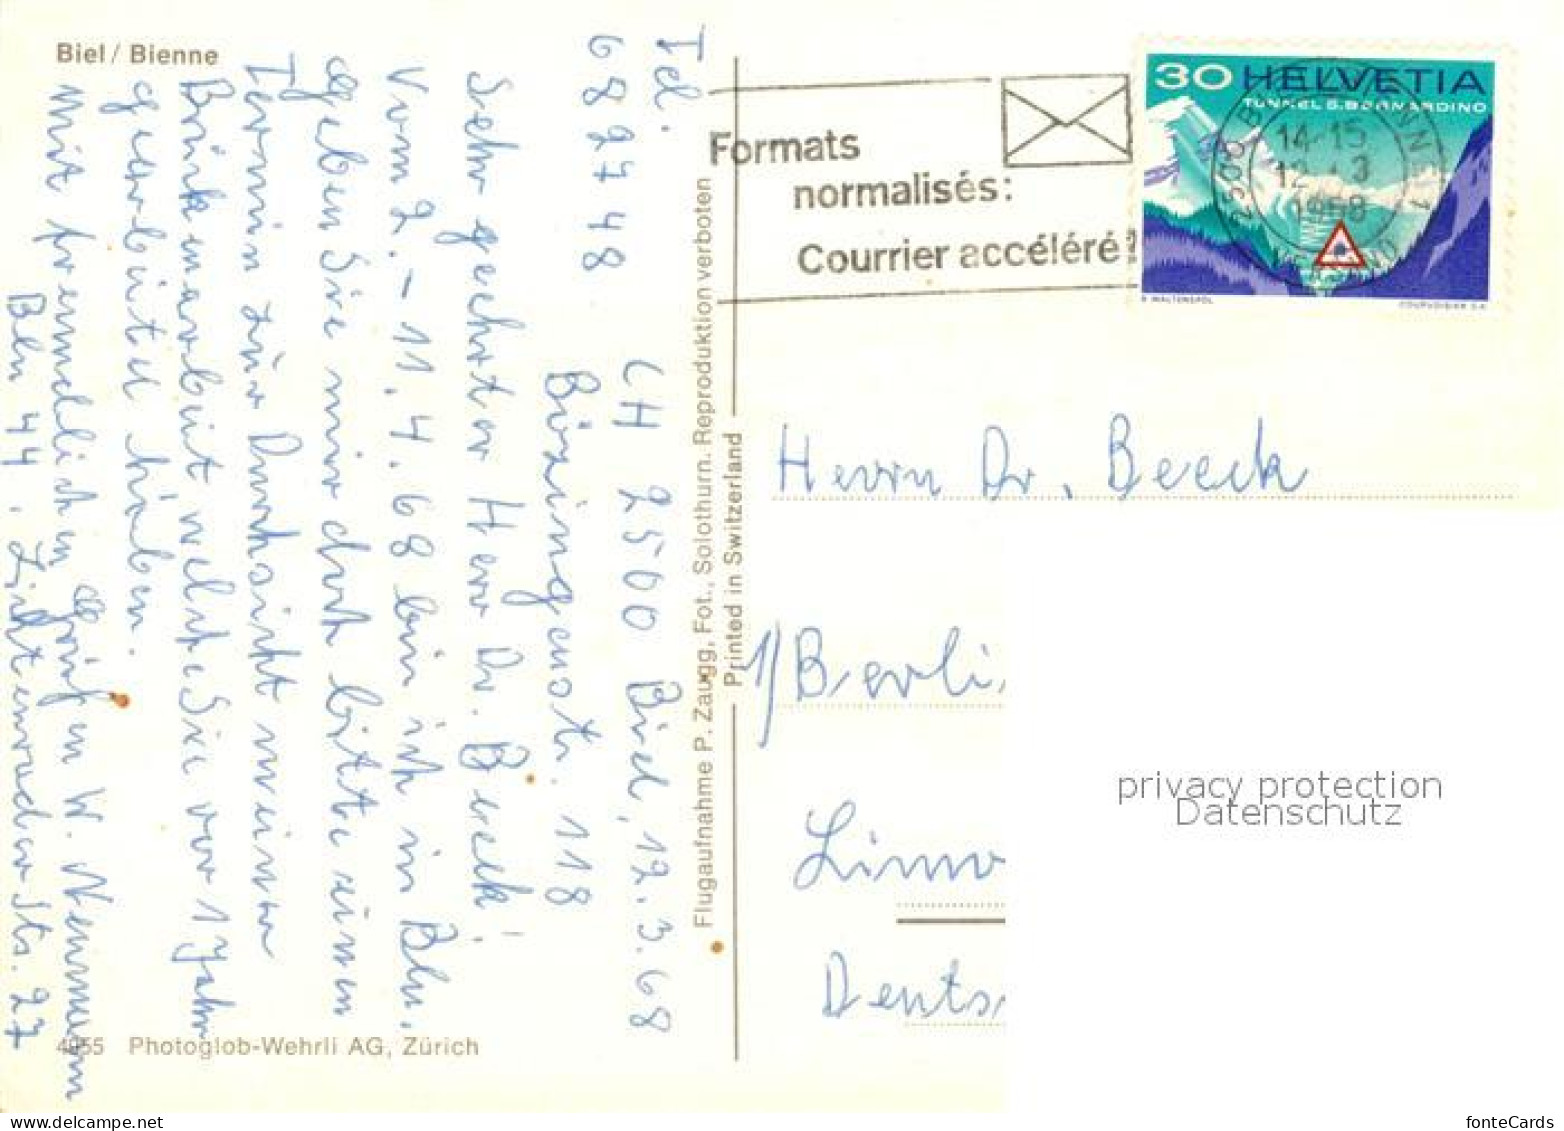 Biel / Bienne
Tel.
68 27 48
CH 2500 Biel, 12.3.68
Bözingenstr. 118
Sehr geehrter Herr Dr. Beeck!
Vom 2. – 11.4.68 bin ich in Bln.
Geben Sie mir doch bitte einen
Termin zur Durchsicht meiner
Brückenarbeit welche Sie vor 1 Jahr
gearbeitet haben.
Mit freundlichen Grüßen W. Neumann
Bln 44. Lichtenrader Str. 27
4955 Photoglob-Wehrli AG, Zürich
Flugaufnahme P. Zaugg, Fot., Solothurn. Reproduktion verboten
Printed in Switzerland
Formats
normalisés:
Courrier accéléré!
30 HELVETIA
TUNNEL S. BERNARDINO
2500
14-15
12 3
1968
VERSAND
COURVOISIER S.A.
Herrn Dr. Beeck
1/ Berli
Limo
Deuts
privacy protection
Datenschutz
www.delcampe.net
fonteCards